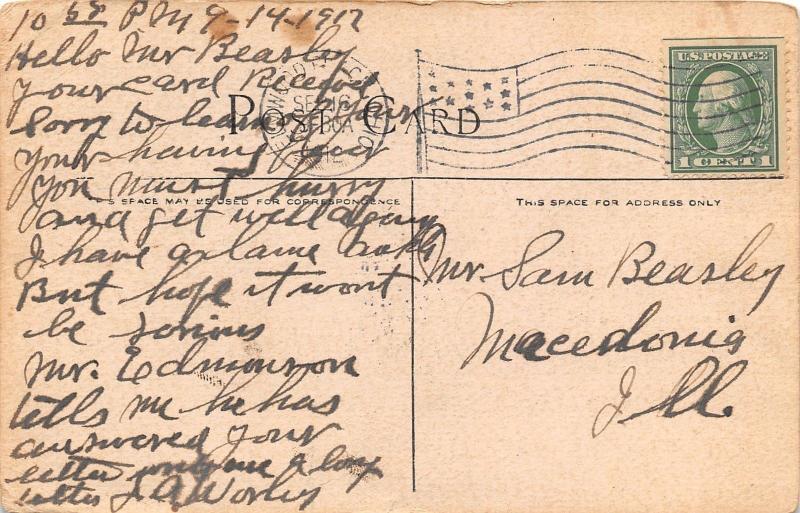 10 PM 9-14-1912
Hello Mr Beasley
Your card Received
Sorry to learn of your
your having fever
You must hurry
and get well again
I have a lame ankle
But hope it wont
be serious
Mr. Edmonson
tells me he has
answered your
letter write me a long
letter J A Worley
POST CARD
SEP 16
1912
U.S. POSTAGE
1 CENT 1
THIS SPACE MAY BE USED FOR CORRESPONDENCE
THIS SPACE FOR ADDRESS ONLY
Mr. Sam Beasley
Macedonia
Ill.